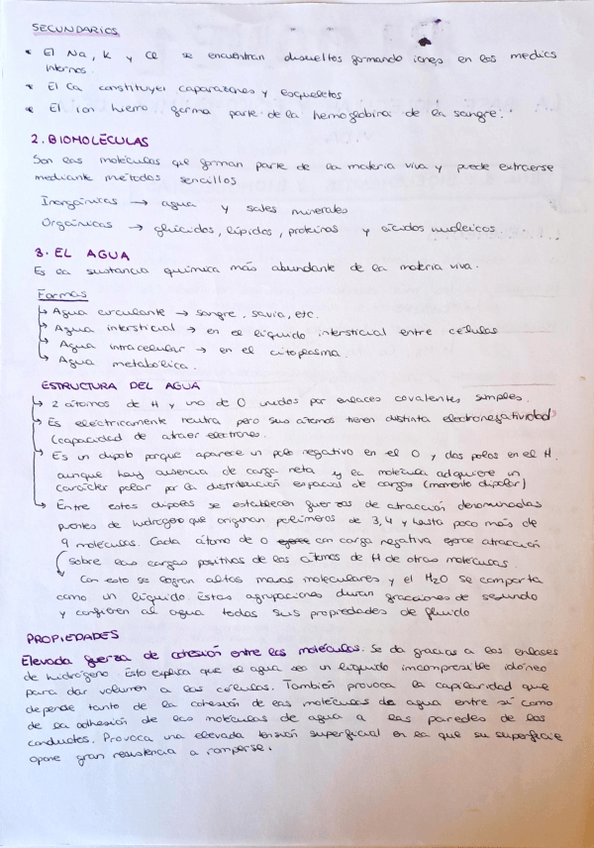 SECUNDARIOS
* El Na, K y Cl se encuentran disueltos formando iones en los medios
internos.
* El Ca constituyen caparazones y esqueletos
* El ion hierro forma parte de la hemoglobina de la sangre.
2. BIOMOLÉCULAS
Son las moléculas que forman parte de la materia viva y puede extraerse
mediante métodos sencillos
Inorgánicas → agua y sales minerales
Orgánicas → glúcidos, lípidos, proteínas y ácidos nucleicos.
3. EL AGUA
Es la sustancia química más abundante de la materia viva.
Formas
↳ Agua circulante → sangre, savia, etc.
↳ Agua intersticial → en el líquido intersticial entre células
↳ Agua intracelular → en el citoplasma.
↳ Agua metabólica.
ESTRUCTURA DEL AGUA
↳ 2 átomos de H y uno de O unidos por enlaces covalentes simples.
↳ Es eléctricamente neutra pero sus átomos tienen distinta electronegatividad
(capacidad de atraer electrones.
↳ Es un dipolo porque aparece un polo negativo en el O y dos polos en el H.
aunque hay ausencia de carga neta y la molécula adquiere un
carácter polar por la distribución espacial de cargas (momento dipolar)
↳ Entre estos dipolos se establecen fuerzas de atracción denominadas
puentes de hidrógeno que originan polímeros de 3, 4 y hasta poco más de
9 moléculas. Cada átomo de O ejerce con carga negativa ejerce atracción
sobre las cargas positivas de los átomos de H de otras moléculas.
Con esto se logran altas masas moleculares y el H2O se comporta
como un líquido. Estas agrupaciones duran fracciones de segundo
y confieren así agua todas sus propiedades de fluido
PROPIEDADES
Elevada fuerza de cohesión entre las moléculas. Se da gracias a los enlaces
de hidrógeno. Esto explica que el agua sea un líquido imcompresible idóneo
para dar volumen a las células. También provoca la capilaridad que
depende tanto de la cohesión de las moléculas de agua entre sí como
de la adhesión de las moléculas de agua a las paredes de los
conductos. Provoca una elevada tensión superficial en la que su superficie
opone gran resistencia a romperse.